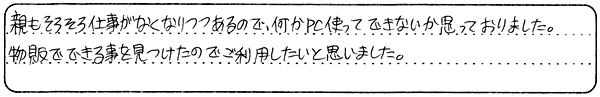 親もそろそろ仕事がなくなりつつあるので、何かPC使ってできないか思っておりました。
物販でできる事を見つけたのでご利用したいと思いました。